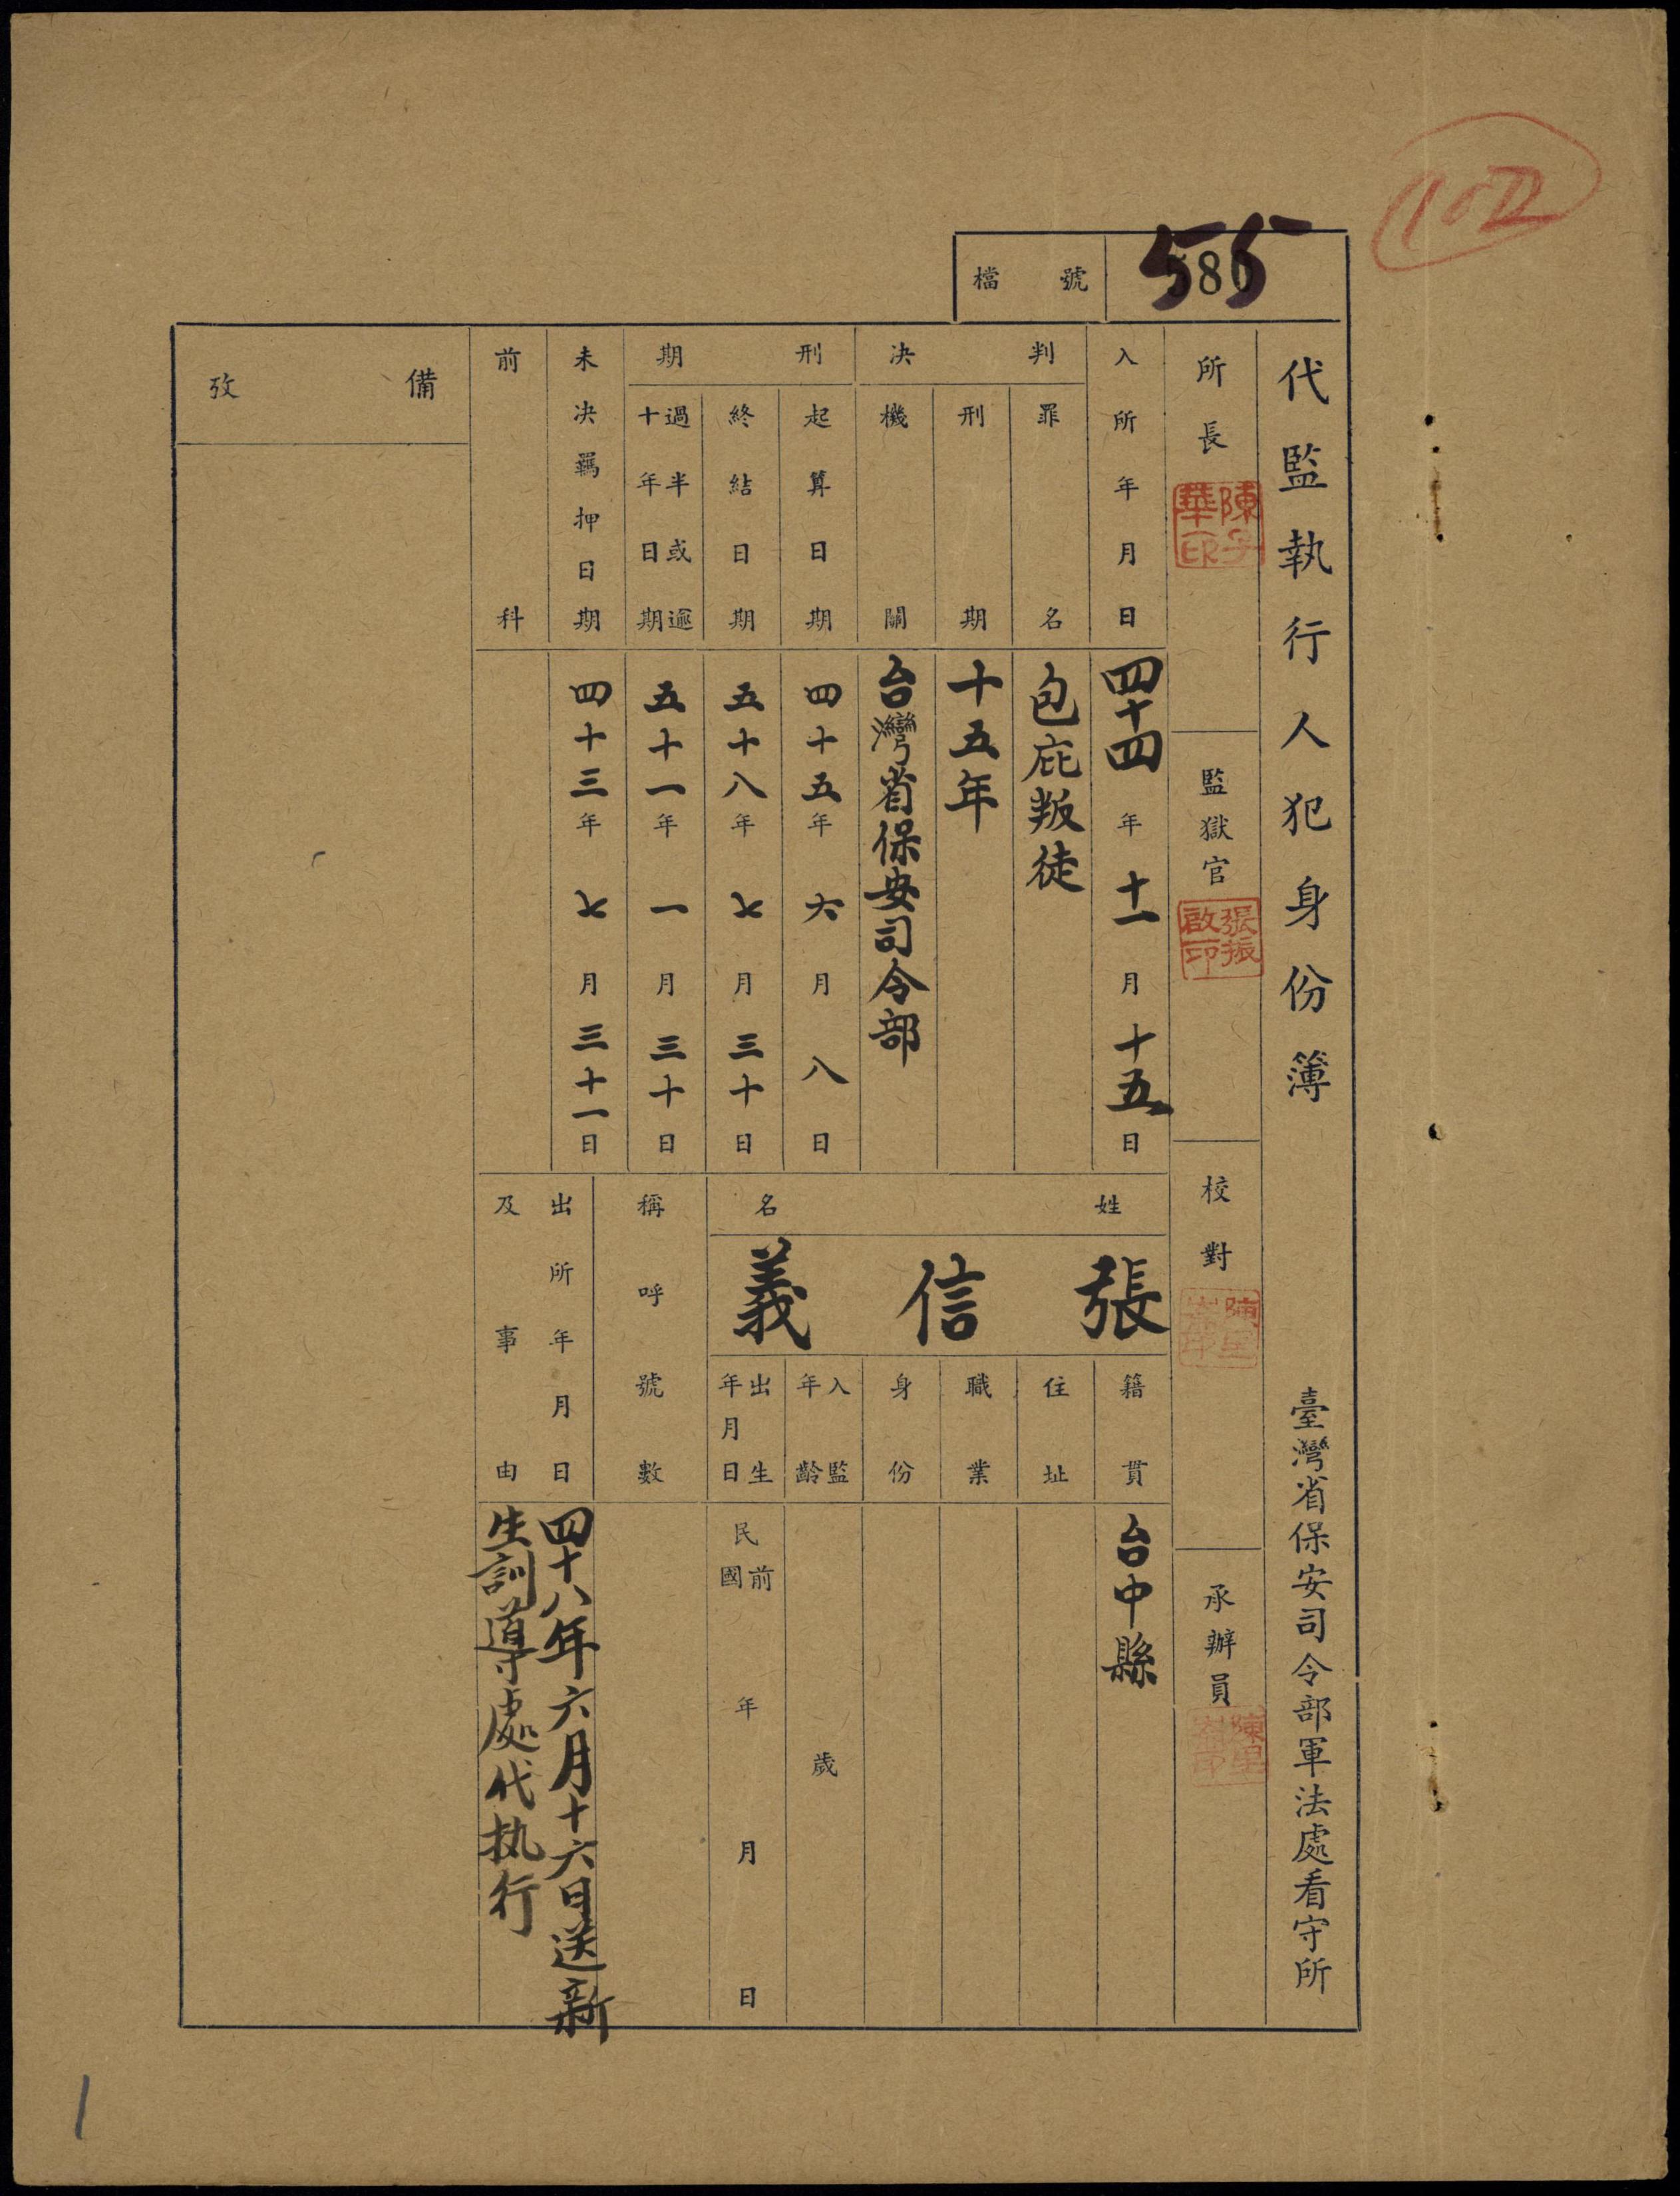 檔號
55
代監執行人犯身份簿
臺灣省保安司令部軍法處看守所
所長
監獄官
張振啟印
校對
承辦員
入所年月日
四十四年十一月十五日
判決
罪名
包庇叛徒
刑期
十五年
機關
台灣省保安司令部
刑期
起算日期
四十五年六月八日
終結日期
五十八年七月三十日
過半或逾十年日期
五十一年一月三十日
未決羈押日期
四十三年七月三十一日
前科
姓名
張信義
籍貫
台中縣
住址
職業
身份
入監年齡
歲
出生年月日
民國前
年月日
稱呼號數
出所年月日及事由
四十八年六月十六日送新
生訓導處代执行
備攷